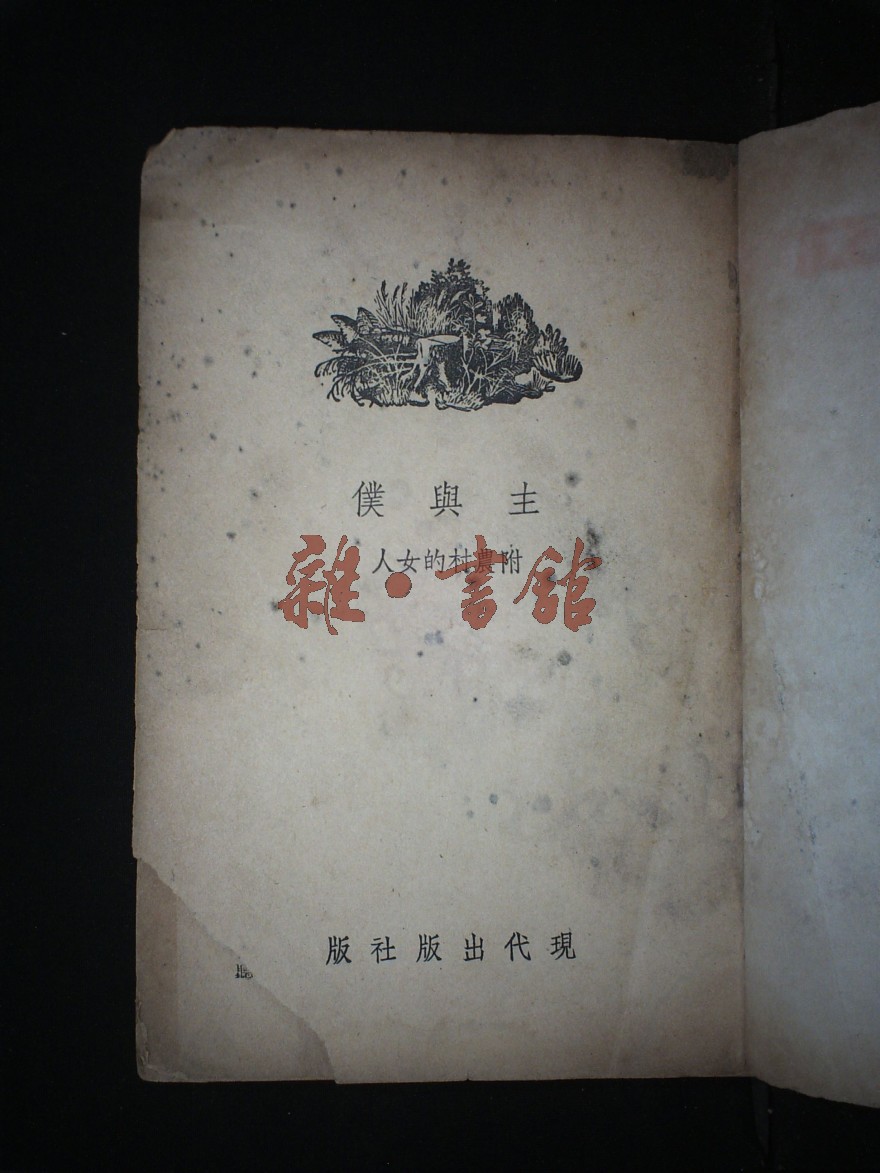 主與僕
附農村的女人
雜·書館
現代出版社版